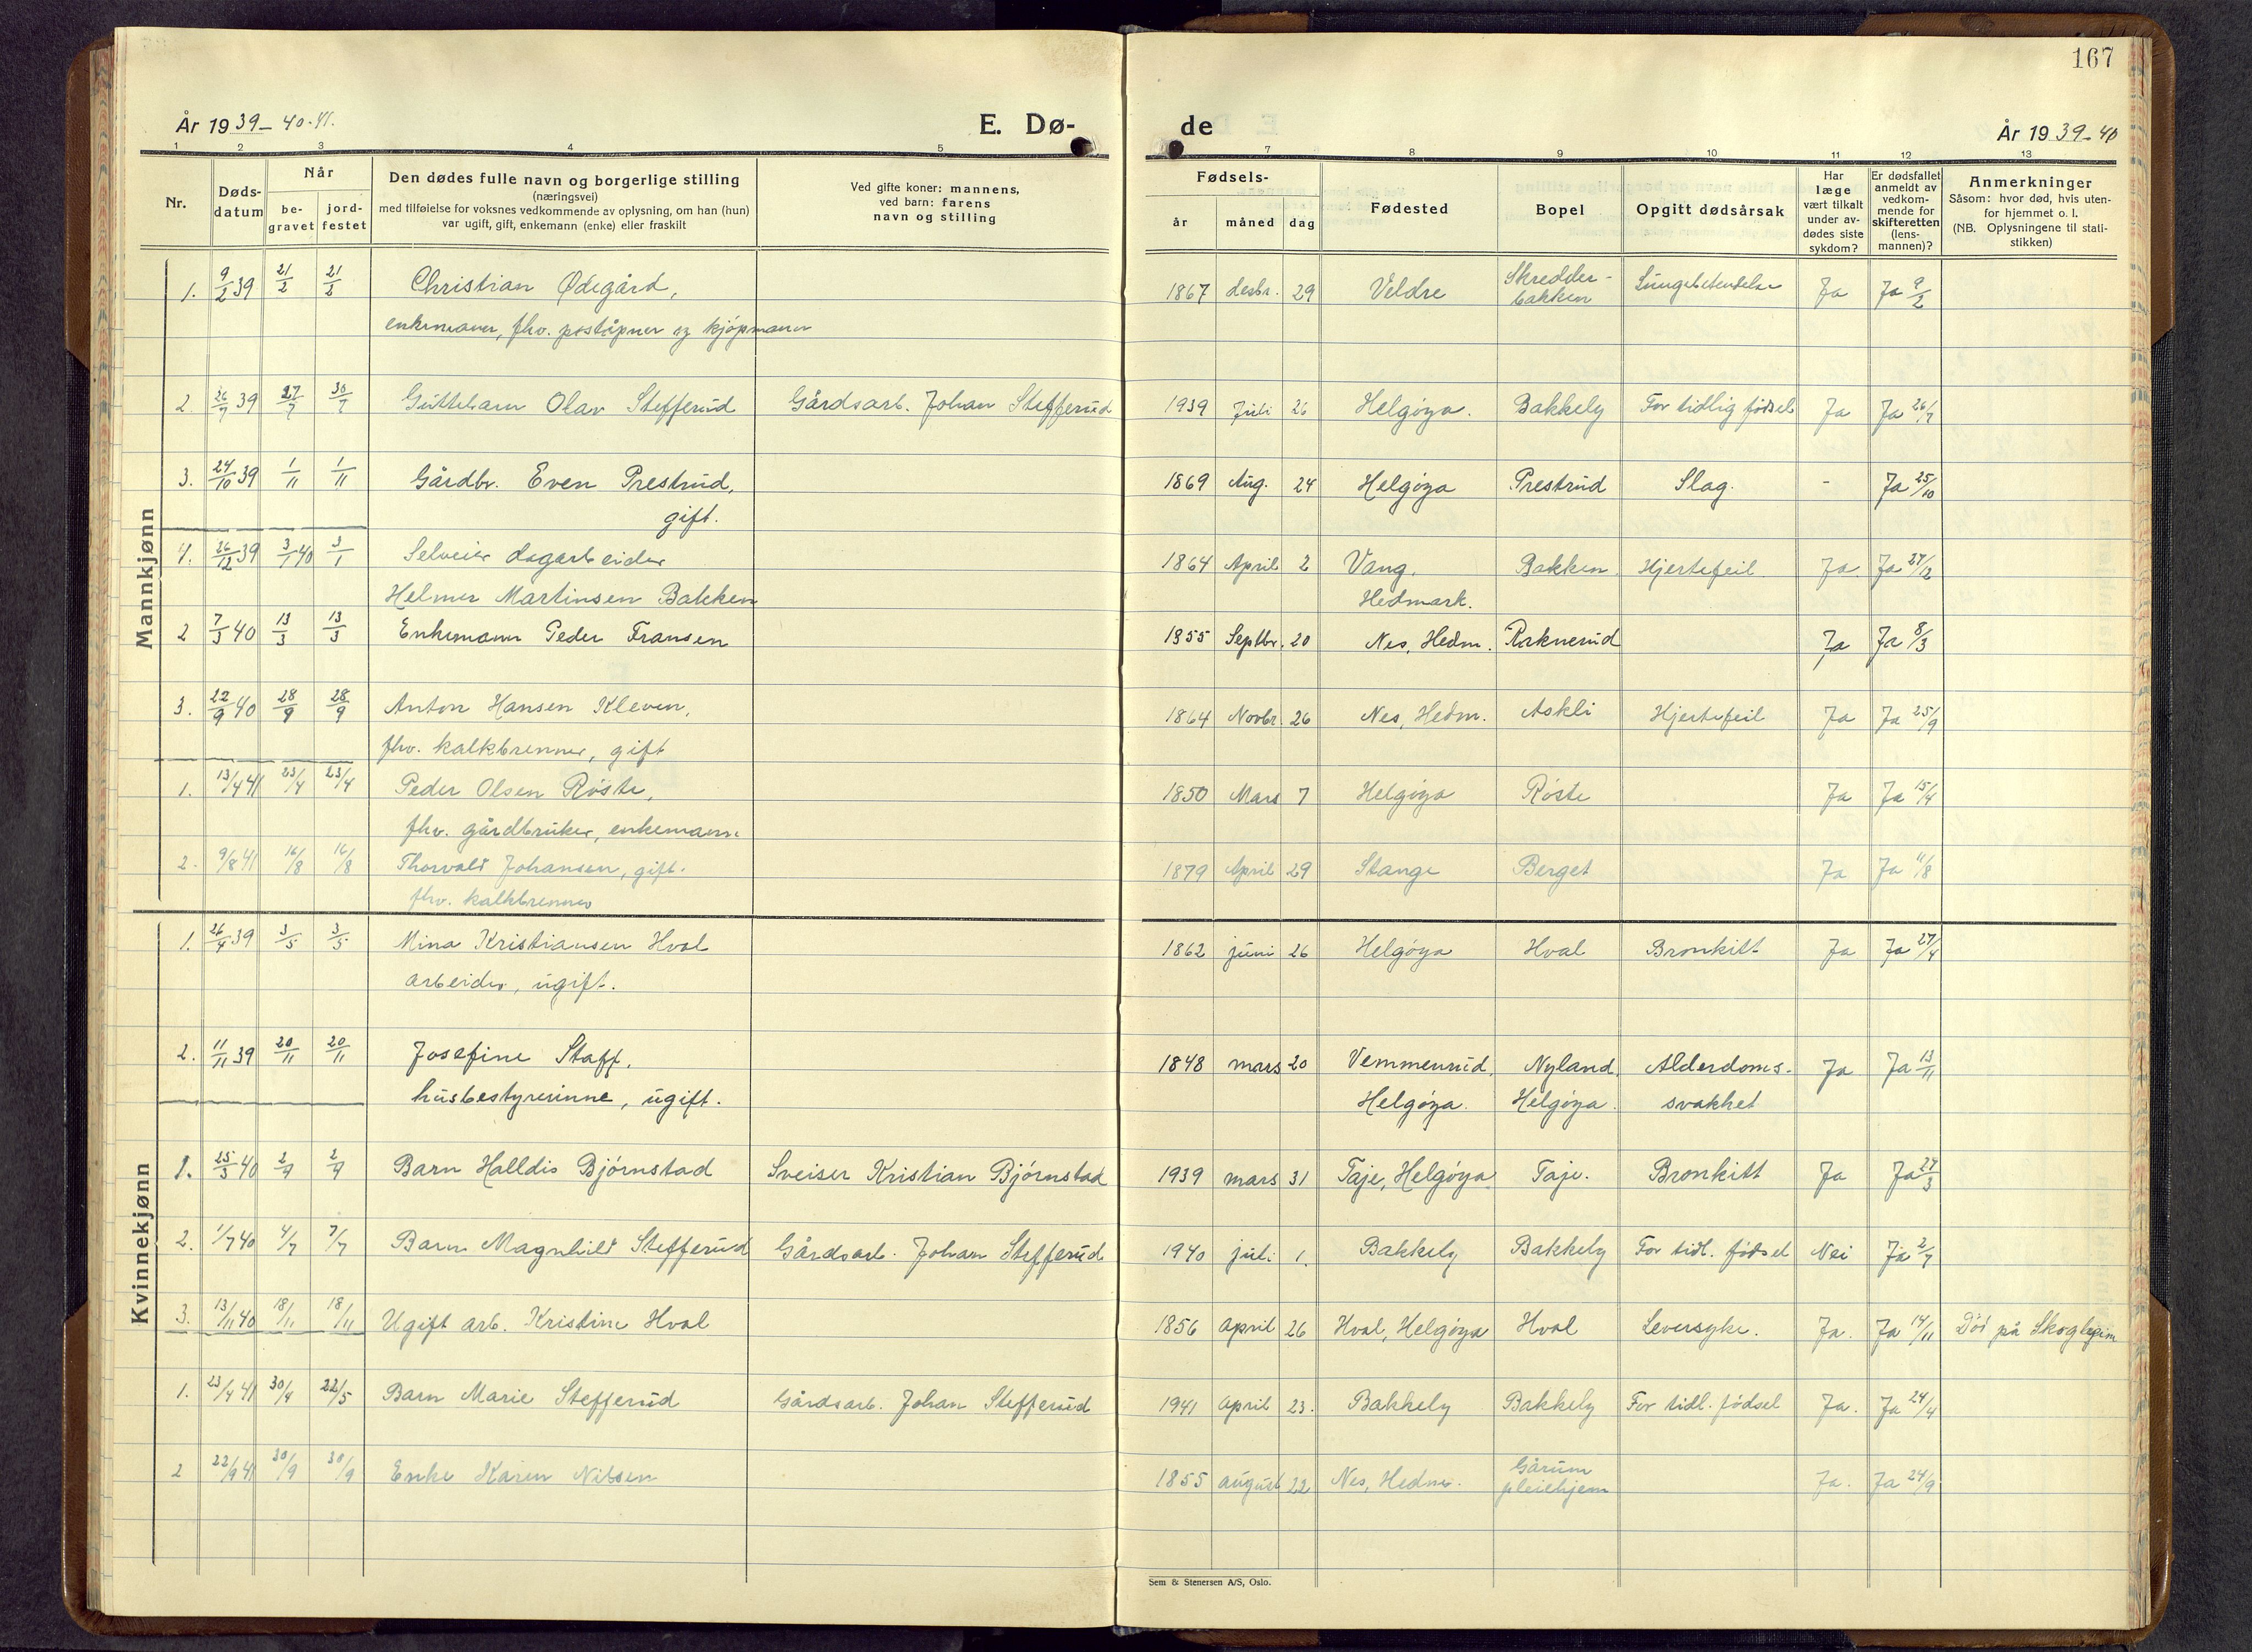 167
År 1939-40-41.
E. Dø-
de
År 1939-40
1 2 3 4 5
7 8 9 10 11 12 13
Nr.
Døds-
datum
Når
be-
gravet
jord-
festet
Den dødes fulle navn og borgerlige stilling
(næringsvei)
med tilføielse for voksnes vedkommende av oplysning, om han (hun)
var ugift, gift, enkemann (enke) eller fraskilt
Ved gifte koner: mannens,
ved barn: farens
navn og stilling
Fødsels-
år måned dag
Fødested
Bopel
Opgitt dødsårsak
Har
læge
vært tilkalt
under av-
dødes siste
sykdom?
Er dødsfallet
anmeldt av
vedkom-
mende for
skifteretten
(lens-
mannen)?
Anmerkninger
Såsom: hvor død, hvis uten-
for hjemmet o. l.
(NB. Oplysningene til stati-
stikken)
Mannkjønn
1. 9/2 39 21/2 21/2 Christian Ødegård, 1867 desbr. 29 Veldre Skredder- Lungebetendelse Ja Ja 9/2
enkemann, fhv. poståpner og kjøpmann bakken
2. 26/7 39 27/7 30/7 Guttebarn Olav Stefferud Gårdsarb. Johan Stefferud 1939 Juli 26 Helgøya. Bakkely For tidlig fødsel Ja Ja 26/7
3. 24/10 39 1/11 1/11 Gårdbr. Even Prestrud, 1869 Aug. 24 Helgøya Prestrud Slag. - Ja 25/10
gift.
4. 26/12 39 3/1 40 3/1 Selveier dagarbeider 1864 April 2 Vang, Bakken Hjertefeil Ja Ja 27/12
Helmer Martinsen Bakken Hedmark.
2 7/3 40 13/3 13/3 Enkemann Peder Fransen 1855 Septbr. 20 Nes, Hedm. Ja Ja 8/3
3. 22/9 40 28/9 28/9 Anton Hansen Kleven, 1864 Novbr. 26 Nes, Hedm. Askli Hjertefeil Ja Ja 25/9
fhv. kalkbrenner, gift
1. 13/4 41 23/4 23/4 Peder Olsen Røste, 1850 Mars 7 Helgøya Røste Ja Ja 15/4
fhv. gårdbruker, enkemann
2. 9/8 41 16/8 16/8 Thorvald Johansen, gift. 1879 April 29 Stange Berget Ja Ja 11/8
fhv. kalkbrenner
Kvinnekjønn
1. 26/4 39 3/5 3/5 Mina Kristiansen Hval 1862 juni 26 Helgøya Hval Bronkitt Ja Ja 27/4
arbeider, ugift.
2. 11/11 39 20/11 20/11 Josefine Staff, 1848 mars 20 Vemmenrud, Nyland, Alderdoms- Ja Ja 13/11
husbestyrerinne, ugift. Helgøya. Helgøya. svakhet
1. 25/3 40 2/4 2/4 Barn Halldis Bjørnstad Sveiser Kristian Bjørnstad 1939 mars 31 Taje, Helgøya Taje. Bronkitt Ja Ja 27/3
2. 1/7 40 4/7 7/7 Barn Magnhild Stefferud Gårdsarb. Johan Stefferud 1940 juli 1. Bakkely Bakkely For tidl. fødsel Nei Ja 2/7
3. 13/11 40 18/11 18/11 Ugift arb. Kristine Hval 1856 april 26 Hval, Helgøya Hval Leversyke. Ja. Ja 14/11 Død på Skogheim
1. 23/4 41 30/4 22/5 Barn Marie Stefferud Gårdsarb. Johan Stefferud 1941 april 23. Bakkely Bakkely For tidl. fødsel Ja. Ja 24/4
2 22/9 41 30/9 30/9 Enke Karen Nilsen 1855 august 22 Nes, Hedm. Gårum Ja. Ja 24/9
pleiehjem
Sem & Stenersen A/S, Oslo.